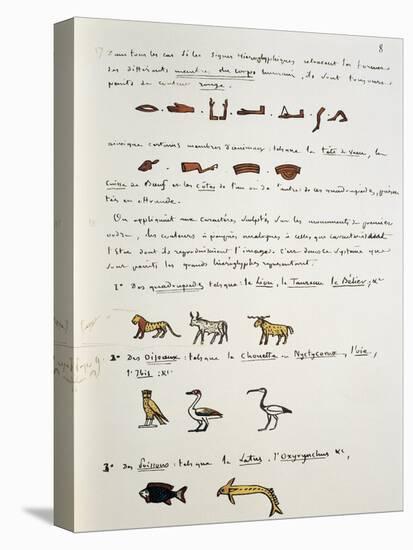 8
17 Dans tous les cas où les signes hiéroglyphiques retracent les formes
des différents membres du corps humain, ils sont toujours
peints de couleur rouge.
ainsi que certains membres d'animaux: tels que la tête de Veau, la
Cuisse de Bœuf et les Côtes de l'un ou de l'autre de ces quadrupèdes,
en offrande.
On appliquait aux caractères sculptés sur les monuments de premier
ordre, les couleurs à peu près analogues à celles que
l'Etre dont ils reproduisaient l'image. c'est dans ce système que
sont peints les grands hiéroglyphes représentant.
1° Des quadrupèdes tels que: le Lion, le Taureau le Bélier, &c
2° des Oiseaux: tels que la Chouette ou Nycticorax, l'oie,
l'Ibis: &c.
3° des Poissons: tels que le Latus, l'Oxyrynchus &c,